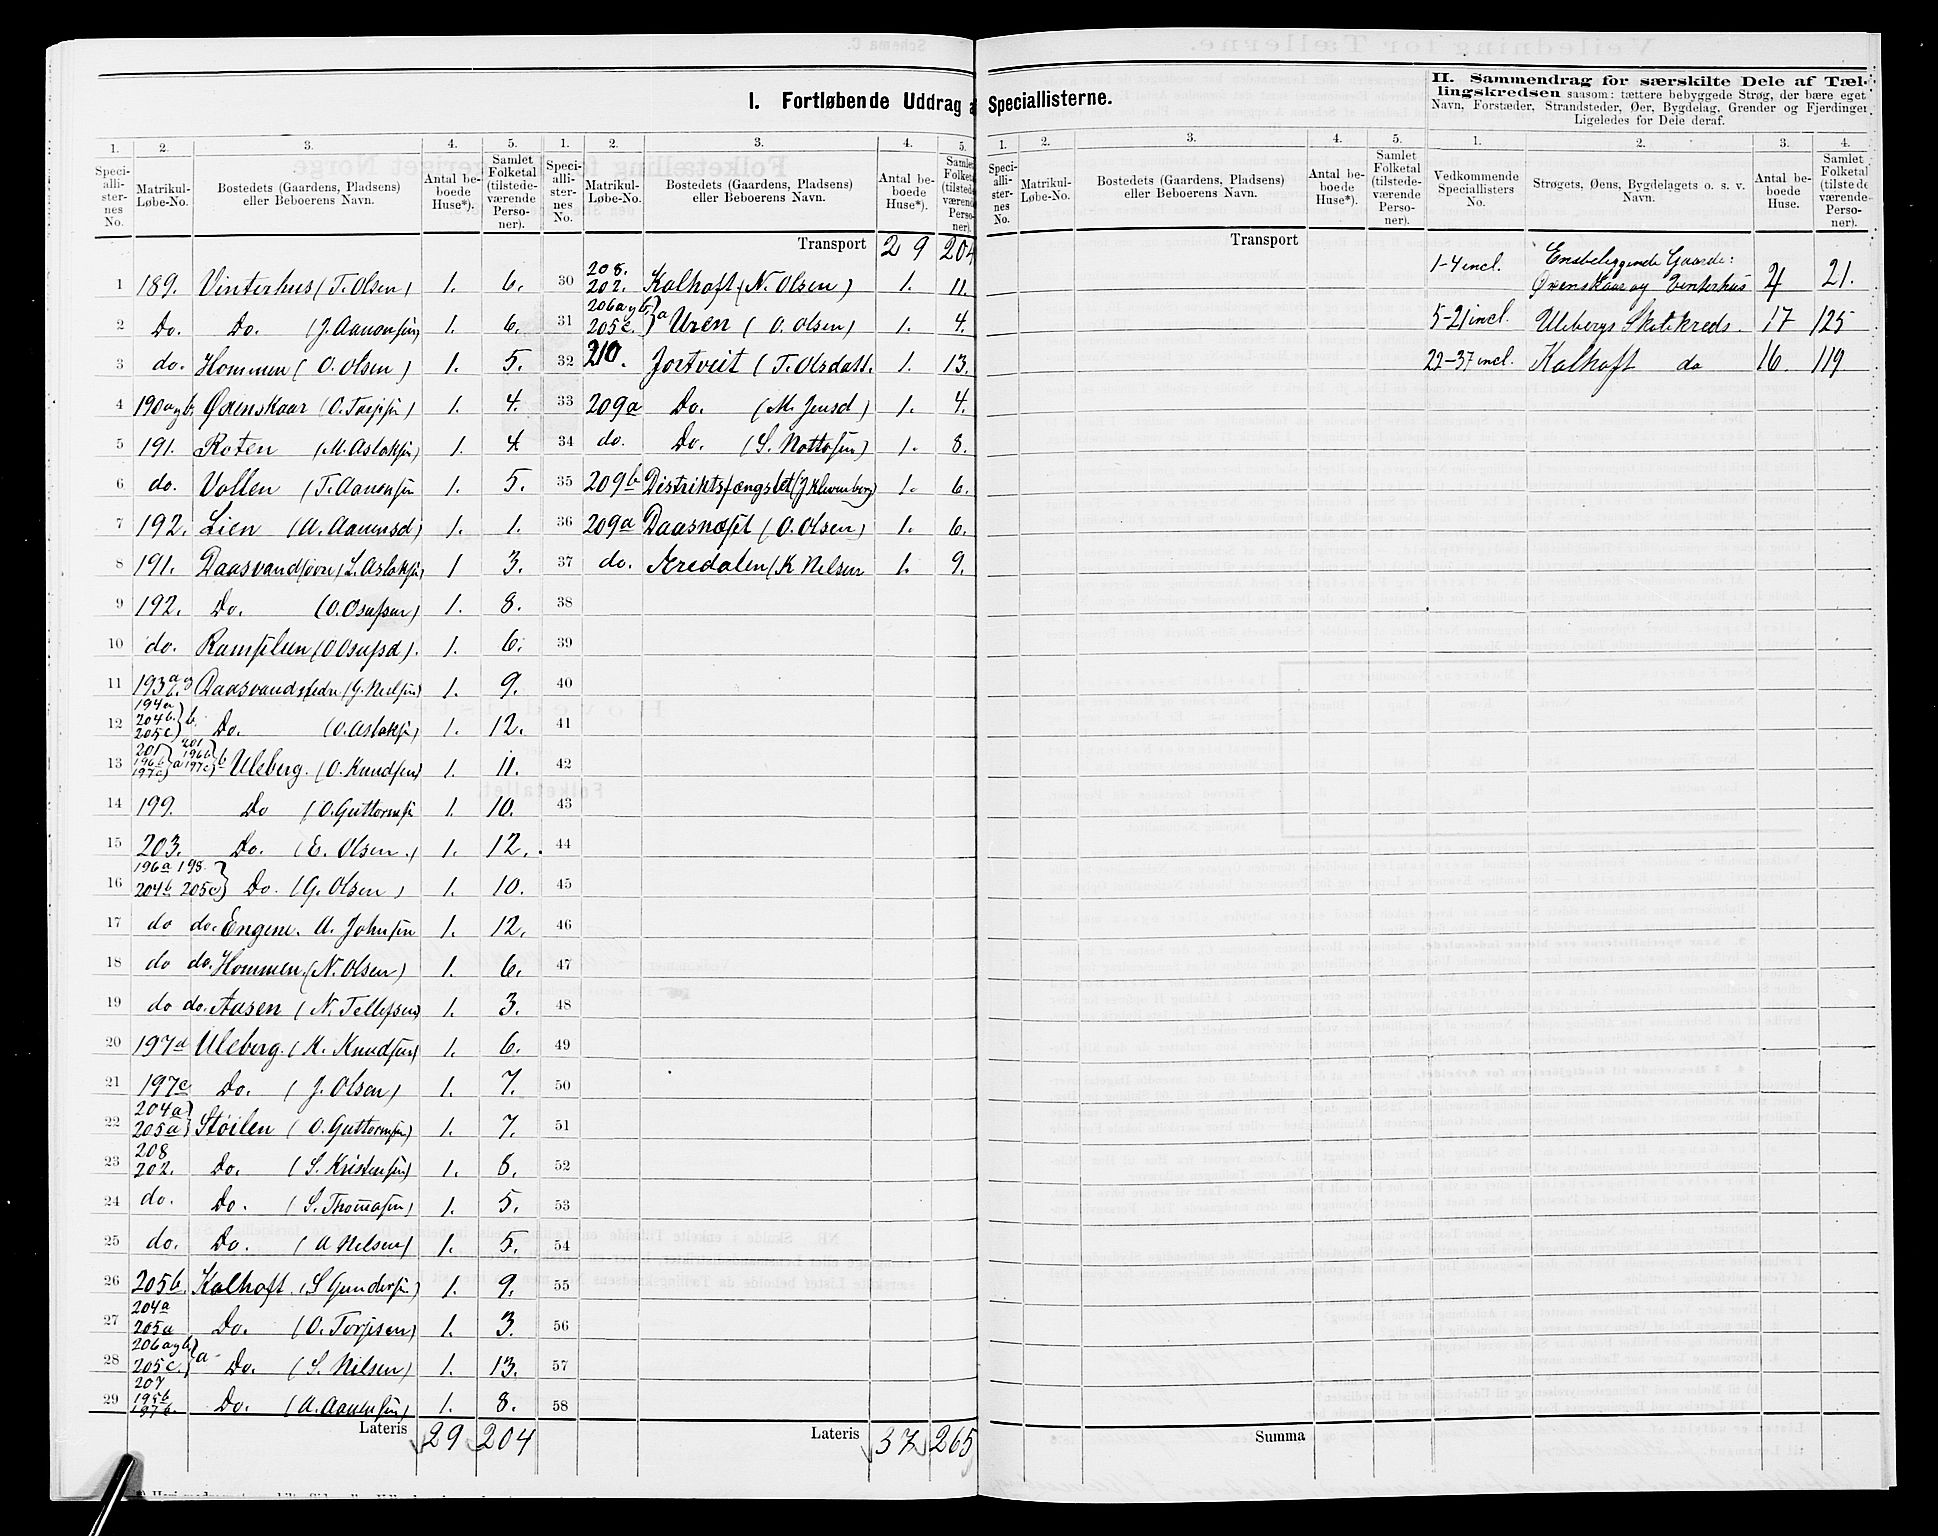 I. Fortløbende Uddrag a Speciallisterne.
II. Sammendrag for særskilte Dele af Tæl-
lingskredsen saasom: tættere bebyggede Strøg, der bære eget
Navn, Forstæder, Strandsteder, Øer, Bygdelag, Grender og Fjerdinger
Ligeledes for Dele deraf.
1. 2. 3. 4. 5. 1. 2. 3. 4. 5.
Speciallisternes No. Matrikul-Løbe-No. Bostedets (Gaardens, Pladsens) eller Beboerens Navn. Antal beboede Huse*). Samlet Folketal (tilstedeværende Personer).
Speciallisternes No. Matrikul-Løbe-No. Bostedets (Gaardens, Pladsens) eller Beboerens Navn. Antal beboede Huse*). Samlet Folketal (tilstedeværende Personer).
Transport 29 204
1 189. Vinterhus (T. Olsen) 1. 6.
2 Do. Do. (J. Aanonsen) 1. 6.
3 do. Hommen (O. Olsen) 1. 5.
4 190 a og b Øxenskaar (O. Tarjesen) 1. 4.
5 191. Roten (M. Aslaksen) 1. 4
6 do. Vollen (T. Aanonsen 1. 5.
7 192. Lien (A. Aanensd) 1. 1.
8 191. Daasvand (L. Aslaksen) 1 3.
9 192. Do. (O. Osufsen) 1. 8.
10 do. (O Osufsd). 1. 6.
11 193 a og b. Daasvand (G. Nielsen) 1. 9.
12 194a 204b. 205c) b. Do. (O. Aslaksen) 1. 12.
13 201 196b 197c) a 201 196b 197c) b Uleberg. (O. Knudsen) 1. 11.
14 199. Do (O. Guttormsen 1. 10.
15 203. Do. (E. Olsen.) 1. 12.
16 196a 198 204b 205c) Do. (G. Olsen) 1. 10.
17 do do. Engene. A. Johnsen 1. 12.
18 do do. Hommen. (N. Olsen) 1. 6.
19 do do. Aasen (N. Tellefsen) 1. 3.
20 197d Uleberg. (K. Knudsen) 1. 6.
21 197c Do. (J. Olsen) 1. 7.
22 204a 205a) Støilen (O. Guttormsen) 1. 7.
23 208 202. Do. (S. Kristensen) 1. 8.
24 do. Do. (S. Thomasen) 1. 5.
25 do. Do. (A Nilsen) 1. 5.
26 205b. Kalhoft. (S Gundersen) 1. 9.
27 204a 205a Do. (O. Torjusen) 1. 3.
28 206 a og b. 205c.) a Do. (S. Nilsen) 1. 13.
29 207 195b 197b. Do. (A. Aanensen) 1. 8.
Lateris 29 204
30 208. 202. Kalhoft (N. Olsen) 1. 11.
31 206 a og b. 205c.) a Uren (O. Olsen) 1. 4.
32 210. Jortveit (T. Olsdatt. 1. 13.
33 209a Do. (M. Jensd) 1. 4.
34 do. Do. (S. Nottosen) 1. 8.
35 209b Distriktsfængslet (J Klevenberg) 1. 6.
36 209a Daasnæset (O. Olsen) 1. 6.
37 do. (K Nilsen 1. 9.
38
39
40
41
42
43
44
45
46
47
48
49
50
51
52
53
54
55
56
57
58
Lateris 37 265
1. 2. 3. 4. 5. 1. 2. 3. 4.
Speciallisternes No. Matrikul-Løbe-No. Bostedets (Gaardens, Pladsens) eller Beboerens Navn. Antal beboede Huse*). Samlet Folketal (tilstedeværende Personer).
Vedkommende Speciallisters No. Strøgets, Øens, Bygdelagets o. s. v. Navn. Antal beboede Huse. Samlet Folketal (tilstedeværende Personer).
Transport
1-4 incl. Ensbeliggende Gaarde: Øxenskaar og Vinterhus 4 21.
5-21 incl. Ulebergs Skolekreds. 17 125
22-37 incl. Kalhoft do 16. 119
Summa